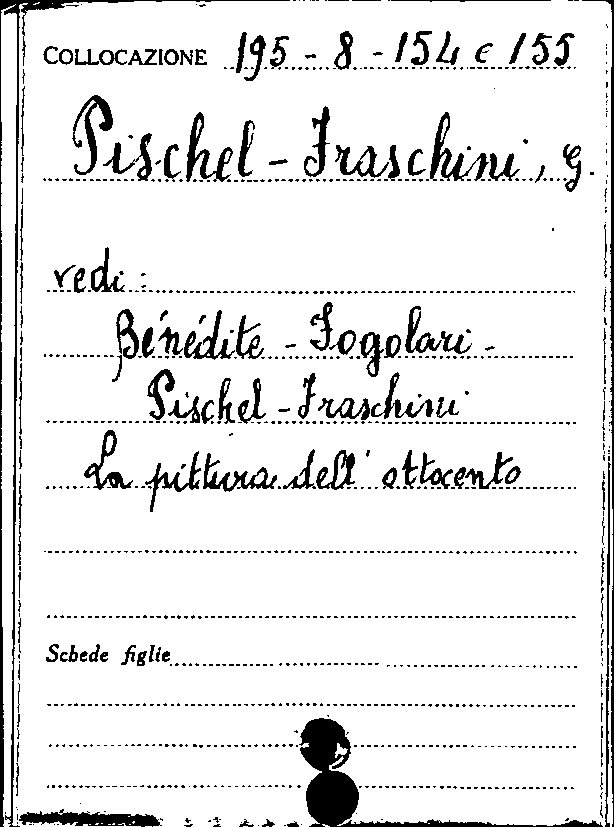 COLLOCAZIONE 195 - 8 - 154 e 155
Pischel - Fraschini, G.
vedi :
Bénédite - Fogolari -
Pischel - Fraschini
La pittura dell' ottocento
Schede figlie